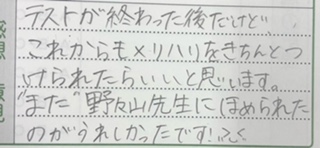 テストが終わった後だけど
これからもメリハリをきちんとつ
けられたらいいと思います。
"また"野々山先生にほめられた
のがうれしかったです!